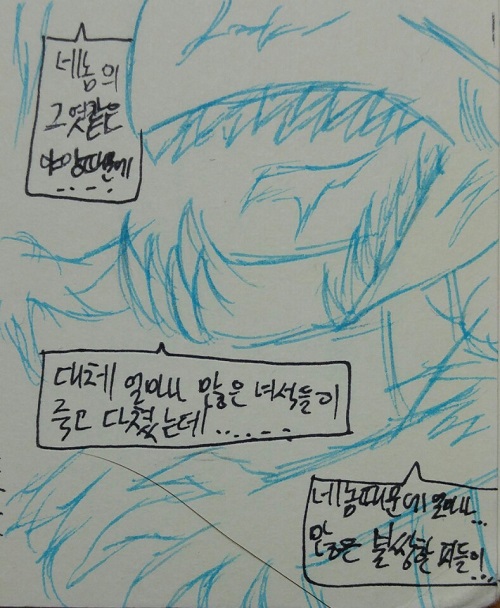 네놈의
그엿같은
야망때문에
....
대체 얼마나 많은 녀석들이
죽고 다쳤는데......
네놈때문에 얼마나...
많은 불쌍한 피들이...